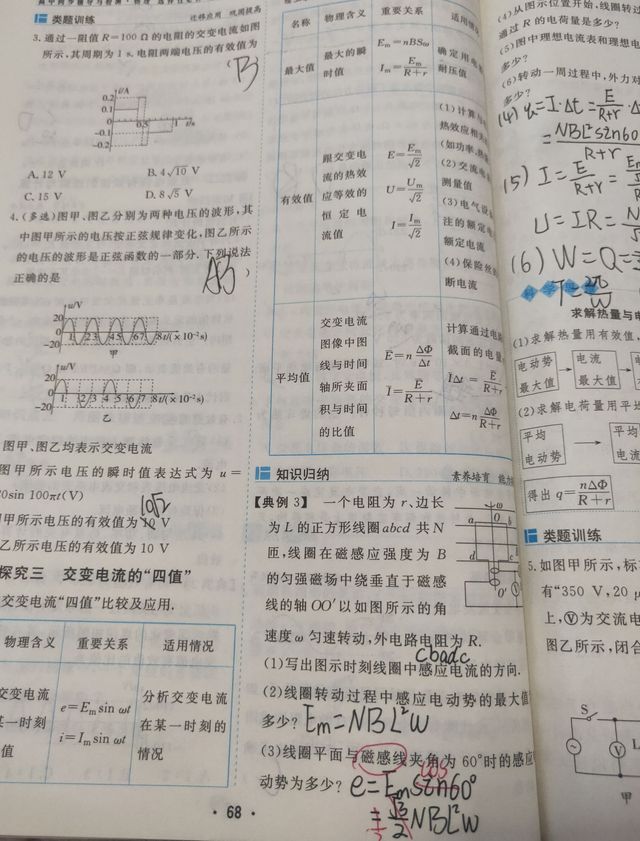 类题训练 迁移应用 巩固提高
3.通过一阻值R=100 Ω的电阻的交变电流如图
所示,其周期为1 s.电阻两端电压的有效值为
B
i/A
0.2
0.1
0.5 1 t/s
-0.1
-0.2
A. 12 V B. 4√10 V
C. 15 V D. 8√5 V
4.(多选)图甲、图乙分别为两种电压的波形,其
中图甲所示的电压按正弦规律变化,图乙所示
的电压的波形是正弦函数的一部分.下列说法
正确的是 AB )
u/V
20
0
-20
1 2 3 4 5 6 7 8 t/(×10⁻²s)
甲
u/V
20
0
-20
1 2 3 4 5 6 7 8 t/(×10⁻²s)
乙
图甲、图乙均表示交变电流
图甲所示电压的瞬时值表达式为u=
20sin 100πt(V)
10√2
甲所示电压的有效值为 V
乙所示电压的有效值为10 V
探究三 交变电流的“四值”
交变电流“四值”比较及应用.
物理含义 重要关系 适用情况
交变电流
某一时刻
值
e=Eₘsin ωt
i=Iₘsin ωt
分析交变电流
在某一时刻的
情况
· 68 ·
名称 物理含义 重要关系 适用情
最大值
最大的瞬
时值
Eₘ=nBSω
Iₘ=Eₘ/(R+r)
确定用电
耐压值
有效值
跟交变电
流的热效
应等效的
恒定电
流值
E=Eₘ/√2
U=Uₘ/√2
I=Iₘ/√2
(1)计算与
热效应相
(如功率、
(2)交流电
测量值
(3)电气设
注的额定
额定电流
(4)保险丝
断电流
平均值
交变电流
图像中图
线与时间
轴所夹面
积与时间
的比值
E=nΔΦ/Δt
I=E/(R+r)
计算通过电
截面的电量
IΔt=E/(R+r)
Δt=nΔΦ/(R+r)
知识归纳 素养培育
【典例3】 一个电阻为r、边长
为L的正方形线圈abcd共N
匝,线圈在磁感应强度为B
的匀强磁场中绕垂直于磁感
线的轴OO′以如图所示的角
速度ω匀速转动,外电路电阻为R.
ω
O
a b
d c
O′
cbadc
(1)写出图示时刻线圈中感应电流的方向.
(2)线圈转动过程中感应电动势的最大值
多少? Em=NBL²W
(3)线圈平面与磁感线夹角为60°时的感应
动势为多少? e=Em cos60°
=1/2 NBL²W
(4)从图示位置开始,线圈转过
通过R的电荷量是多少?
(5)图中理想电流表和理想电
多少?
(6)转动一周过程中,外力对
多少?
(4) q=I·Δt=E/(R+r)·Δt
=NBL²sin60/(R+r)
(5) I=E/(R+r)=
U=IR=
(6) W=Q=
T=2π/W
求解热量与电
(1)求解热量用有效值,
电动势
最大值
电流
最大值
(2)求解电荷量用平均
平均
电动势
平均
电流
得出q=nΔΦ/(R+r)
类题训练
5.如图甲所示,标
有“350 V,20 μ
上,Ⓥ为交流电
图乙所示,闭合
S
V
甲